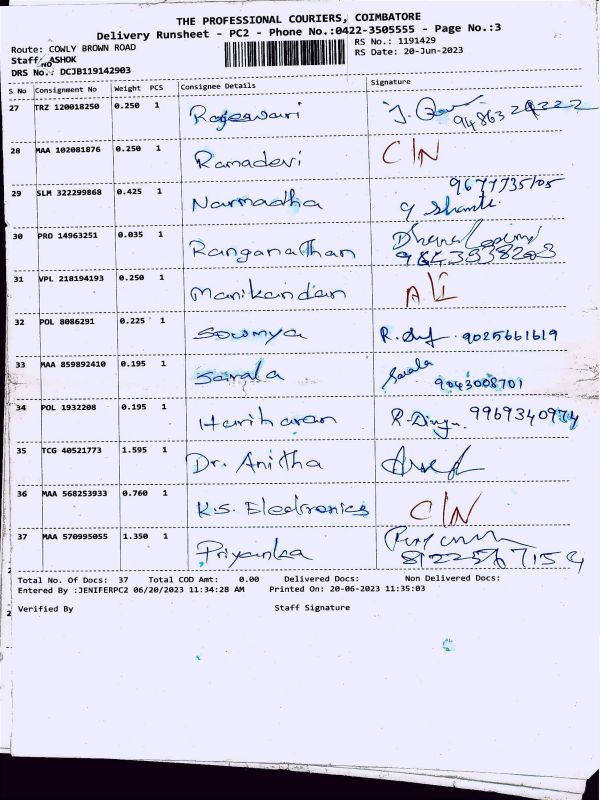 THE PROFESSIONAL COURIERS, COIMBATORE
Delivery Runsheet - PC2 - Phone No.:0422-3505555 - Page No.:3
Route: COWLY BROWN ROAD RS No.: 1191429
Staff: ASHOK RS Date: 20-Jun-2023
DRS No.: DCJB119142903
S No Consignment No Weight PCS Consignee Details Signature
27 TRZ 120018250 0.250 1 Rajeswari
28 MAA 102081876 0.250 1 Ramadevi C/N
29 SLM 322299868 0.425 1 Narmadha 9677735105
30 PRO 14963251 0.035 1 Ranganathan
31 VPL 218194193 0.250 1 Manikandan
32 POL 8086291 0.225 1 Sowmya 9025661619
33 MAA 859892410 0.195 1 Sarala Sarala
9043008701
34 POL 1932208 0.195 1 Hariharan 9969340974
35 TCG 40521773 1.595 1 Dr. Anitha
36 MAA 568253933 0.760 1 K.S. Electronics C/N
37 MAA 570995055 1.350 1 Priyanka
Total No. Of Docs: 37 Total COD Amt: 0.00 Delivered Docs: Non Delivered Docs:
Entered By :JENIFERPC2 06/20/2023 11:34:28 AM Printed On: 20-06-2023 11:35:03
Verified By Staff Signature